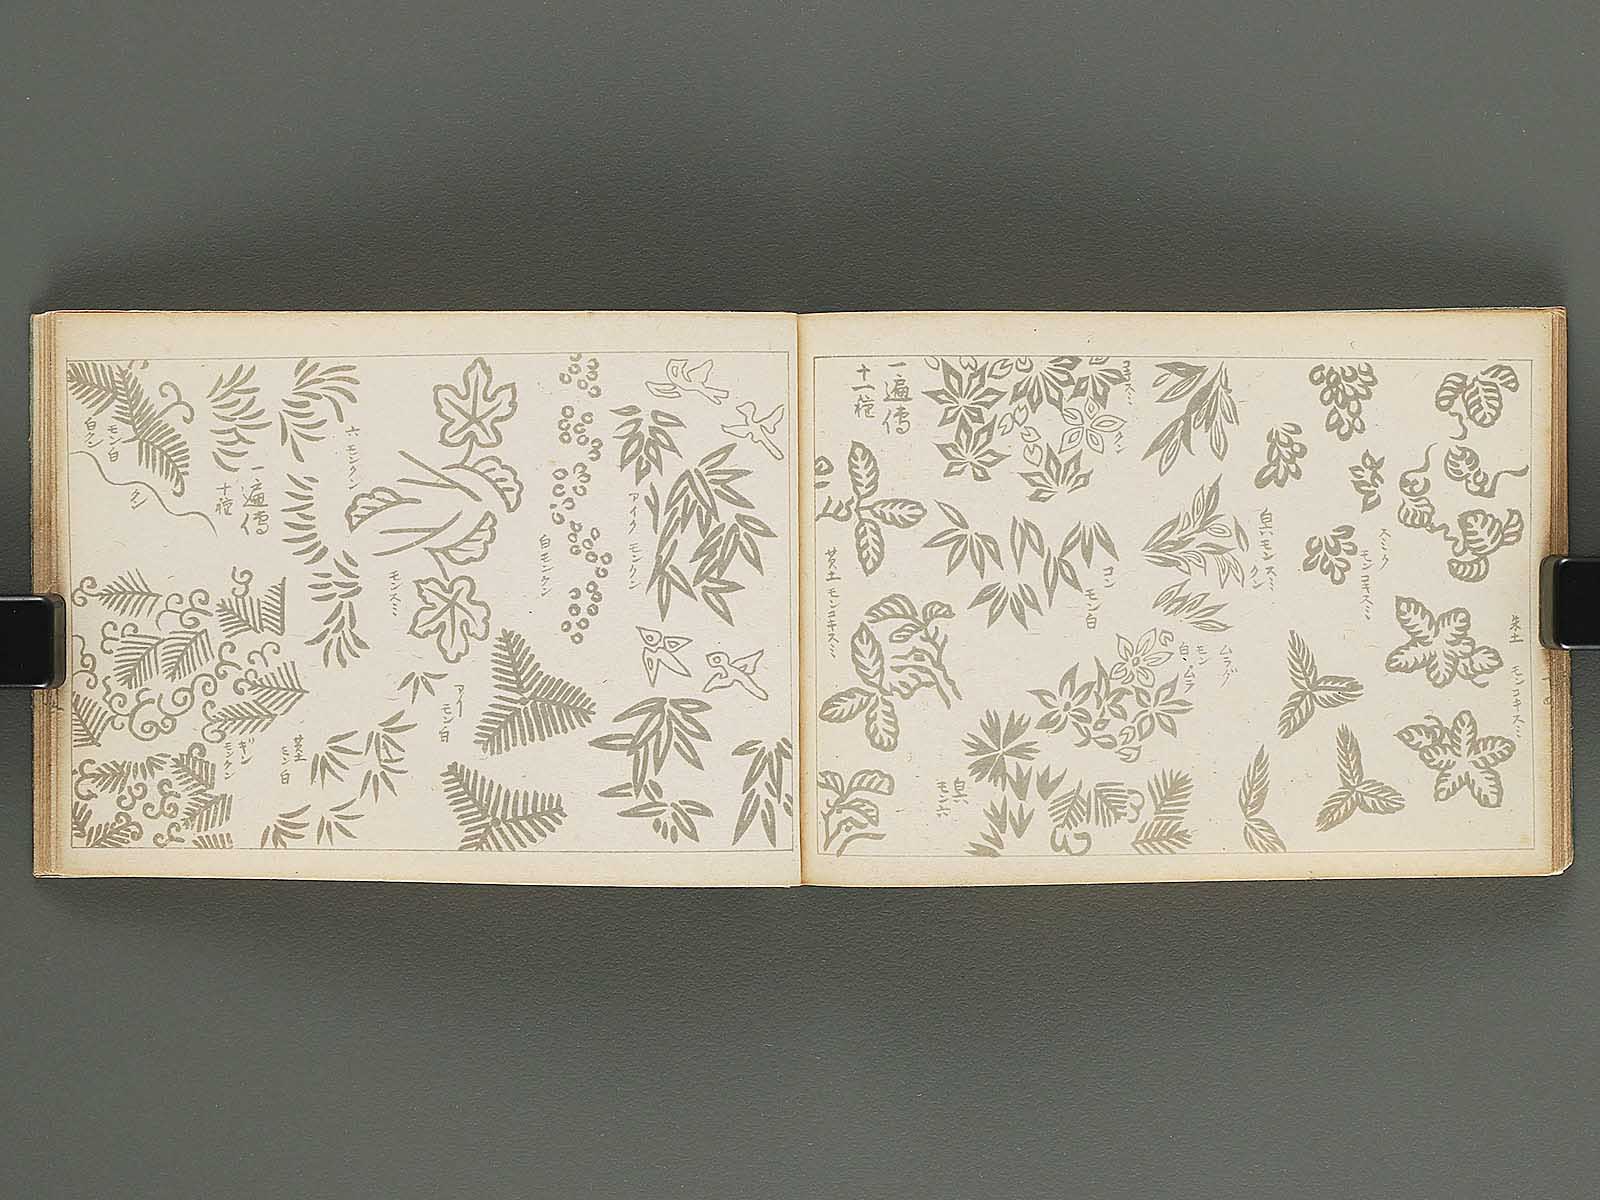 朱土
モンコキスミ
スミク
モンコキスミ
モンスミ
クン
ムラ
モン
白
クン
コン
モン白
モン六
一遍傳
十一種
黄土
モンコキスミ
アイク
モンクン
白モンクン
アイ
モン白
モンスミ
六モンクン
黄土
モン白
一遍傳
十種
ギン
モンクン
モン白
白クン
クン